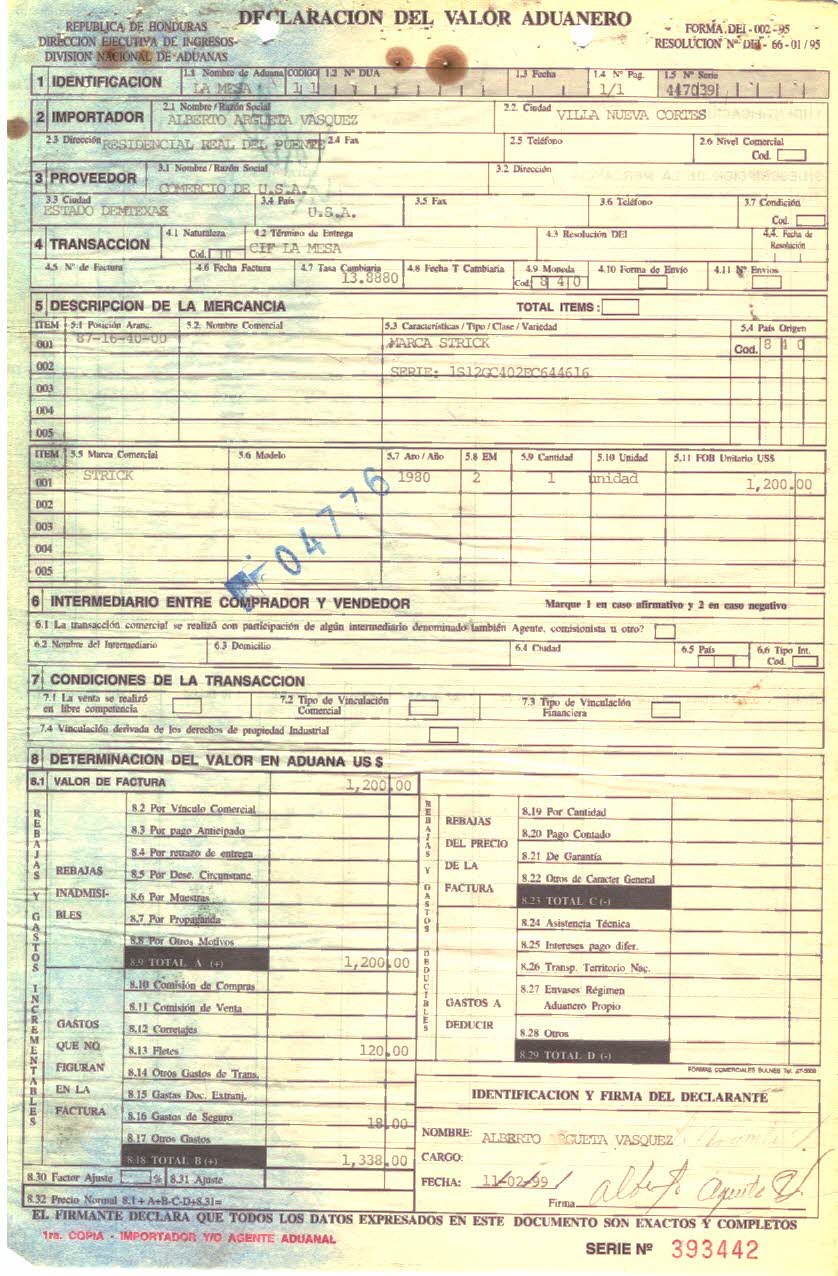 REPUBLICA DE HONDURAS
DIRECCION EJECUTIVA DE INGRESOS
DIVISION NACIONAL DE ADUANAS
DECLARACION DEL VALOR ADUANERO
FORMA DEI - 002 - 95
RESOLUCION Nº DEI - 66 - 01 / 95
1 IDENTIFICACION 1.1 Nombre de Aduana CODIGO 1.2 Nº DUA 1.3 Fecha 1.4 Nº Pag. 1.5 Nº Serie
LA MESA 11 1/1 447039
2 IMPORTADOR 2.1 Nombre / Razón Social 2.2. Ciudad
ALBERTO ARGUETA VASQUEZ VILLA NUEVA CORTES
2.3 Dirección RESIDENCIAL REAL DEL PUENTE 2.4 Fax 2.5 Teléfono 2.6 Nivel Comercial
Cod.
3 PROVEEDOR 3.1 Nombre / Razón Social 3.2 Dirección
COMERCIO DE U.S.A.
3.3 Ciudad 3.4 País 3.5 Fax 3.6 Teléfono 3.7 Condición
ESTADO DEMTEXAS U.S.A. Cod.
4 TRANSACCION 4.1 Naturaleza 4.2 Término de Entrega 4.3 Resolución DEI 4.4. Fecha de Resolución
Cod. CIF LA MESA
4.5 Nº de Factura 4.6 Fecha Factura 4.7 Tasa Cambiaria 4.8 Fecha T Cambiaria 4.9 Moneda 4.10 Forma de Envío 4.11 Nº Envios
13.8880 Cod. 840
5 DESCRIPCION DE LA MERCANCIA TOTAL ITEMS:
ITEM 5.1 Posición Aranc. 5.2. Nombre Comercial 5.3 Características / Tipo / Clase / Variedad 5.4 País Origen
001 87-16-40-00 MARCA STRICK Cod. 840
002 SERIE: 1S12GC402EC644616
003
004
005
ITEM 5.5 Marca Comercial 5.6 Modelo 5.7 Aro / Año 5.8 EM 5.9 Cantidad 5.10 Unidad 5.11 FOB Unitario US$
001 STRICK 1980 2 1 unidad 1,200.00
002
003
004
005
04776
6 INTERMEDIARIO ENTRE COMPRADOR Y VENDEDOR Marque 1 en caso afirmativo y 2 en caso negativo
6.1 La transacción comercial se realizó con participación de algún intermediario denominado también Agente, comisionista u otro?
6.2 Nombre del Intermediario 6.3 Domicilio 6.4 Ciudad 6.5 País 6.6 Tipo Int.
Cod.
7 CONDICIONES DE LA TRANSACCION
7.1 La venta se realizó en libre competencia 7.2 Tipo de Vinculación Comercial 7.3 Tipo de Vinculación Financiera
7.4 Vinculación derivada de los derechos de propiedad Industrial
8 DETERMINACION DEL VALOR EN ADUANA US $
8.1 VALOR DE FACTURA 1,200.00
REBAJAS Y GASTOS INCREMENTABLES
REBAJAS INADMISIBLES
8.2 Por Vínculo Comercial
8.3 Por pago Anticipado
8.4 Por retrazo de entrega
8.5 Por Desc. Circunstanc.
8.6 Por Muestras
8.7 Por Propaganda
8.8 Por Otros Motivos
8.9 TOTAL A (+) 1,200.00
GASTOS QUE NO FIGURAN EN LA FACTURA
8.10 Comisión de Compras
8.11 Comisión de Venta
8.12 Corretajes
8.13 Fletes 120.00
8.14 Otros Gastos de Trans.
8.15 Gastas Doc. Extranj.
8.16 Gastos de Seguro 18.00
8.17 Otros Gastos
8.18 TOTAL B (+) 1,338.00
8.30 Factor Ajuste % 8.31 Ajuste
8.32 Precio Normal 8.1 + A+B-C-D+8.31=
REBAJAS Y GASTOS DEDUCIBLES
REBAJAS DEL PRECIO DE LA FACTURA
8.19 Por Cantidad
8.20 Pago Contado
8.21 De Garantía
8.22 Otros de Caracter General
8.23 TOTAL C (-)
GASTOS A DEDUCIR
8.24 Asistencia Técnica
8.25 Intereses pago difer.
8.26 Transp. Territorio Nac.
8.27 Envases Régimen Aduanero Propio
8.28 Otros
8.29 TOTAL D (-)
FORMAS COMERCIALES BULNES Tel.
IDENTIFICACION Y FIRMA DEL DECLARANTE
NOMBRE: ALBERTO ARGUETA VASQUEZ
CARGO:
FECHA: 11/02/99
Firma
EL FIRMANTE DECLARA QUE TODOS LOS DATOS EXPRESADOS EN ESTE DOCUMENTO SON EXACTOS Y COMPLETOS
1ra. COPIA - IMPORTADOR Y/O AGENTE ADUANAL
SERIE Nº 393442